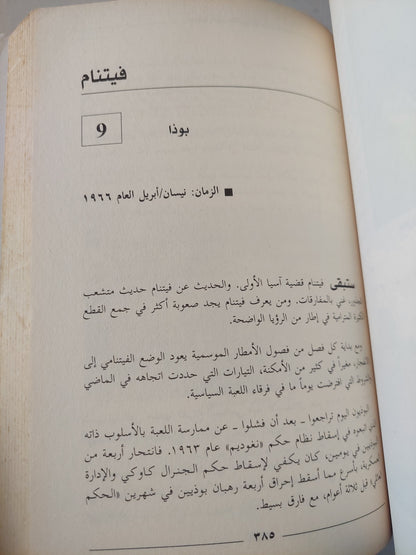 فيتنام
9
بوذا
■ الزمان: نيسان/أبريل العام ١٩٦٦
ستبقى فيتنام قضية آسيا الأولى. والحديث عن فيتنام حديث متشعب
غني بالمفارقات. ومن يعرف فيتنام يجد صعوبة أكثر في جمع القطع
المترامية في إطار من الرؤيا الواضحة.
ومع بداية كل فصل من فصول الأمطار الموسمية يعود الوضع الفيتنامي إلى
مغيراً في كثير من الأمكنة، التيارات التي حددت اتجاهه في الماضي
افترضت يوماً ما في فرقاء اللعبة السياسية.
البوذيون اليوم تراجعوا ـ بعد أن فشلوا ـ عن ممارسة اللعبة بالأسلوب ذاته
في إسقاط نظام حكم «نغوديم» عام ١٩٦٣. فانتحار أربعة من
في يومين، كان يكفي لإسقاط حكم الجنرال كاوكي والإدارة
بأسرع مما أسقط إحراق أربعة رهبان بوذيين في شهرين «الحكم
قبل ثلاثة أعوام، مع فارق بسيط.
٣٨٥